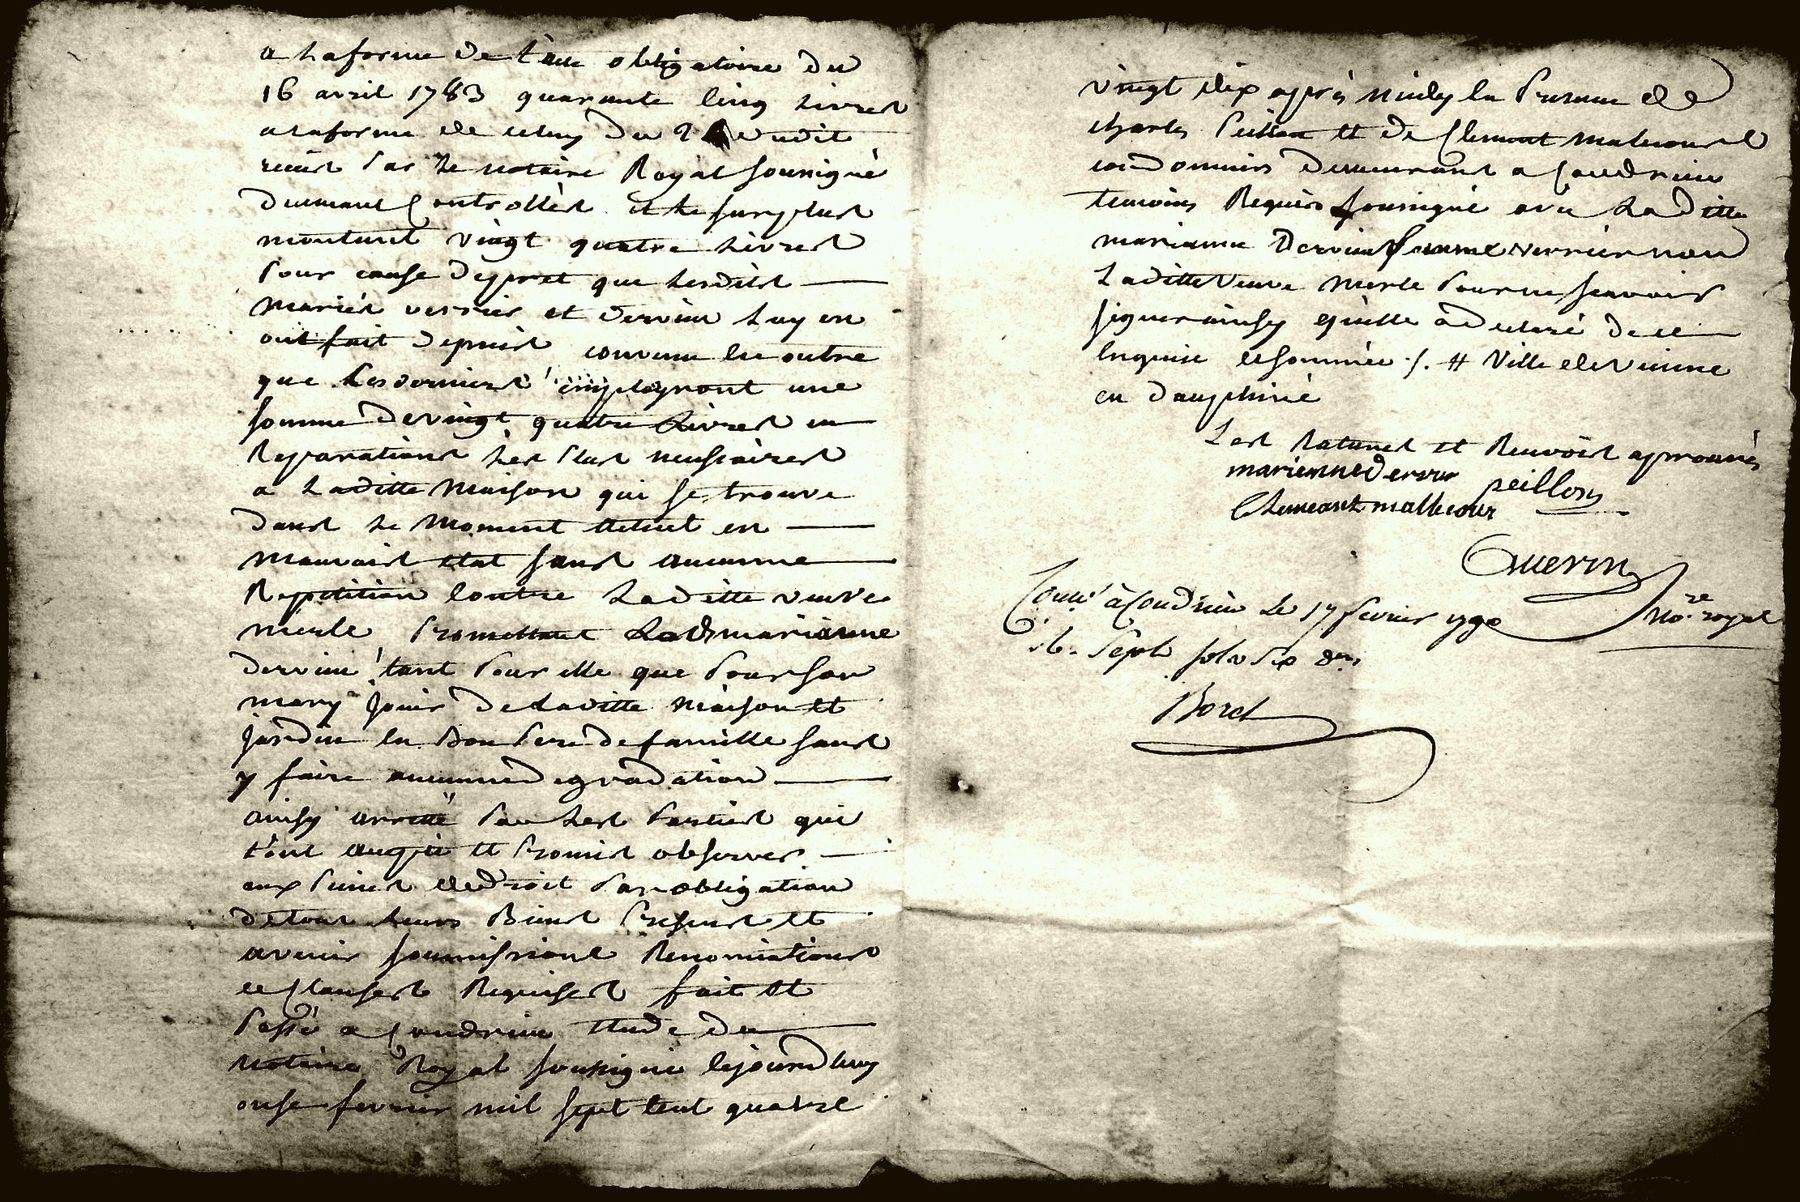 a laforme de l'acte obligatoire du
16 avril 1783 quarante cinq Livres
alaforme de celuy du dudit
recus Par Le notaire Royal soussigné
duemant Controllés et Le surplus
montant vingt quatre Livres
Pour cause depret que Lesdits
mariés verrier et dervieu Luy en
ont fait depuis convenu En outre
que Les derniers employront une
somme de vingt quatre Livres en
Reparations Les Plus necessaires
a Laditte Maison qui se trouve
dans Le Moment actuel en
mauvais état sans aucunne
Repetition Contre Laditte veuve
merle Promettant Lad. marianne
dervieu tant Pour elle que Pour son
mary Jouir de Laditte Maison et
jardin En Bon Pere de famille sans
y faire aucunne degradation
ainsy arretté Par Les Parties qui
l'ont accepté et Promis observer
aux Peines de droit Par obligation
de tous Leurs Biens Presents et
avenir soumissions Renonciations
et Clauses Requises fait et
Passé a Condrieu Etude du
notaire Royal soussigné Cejourd'huy
onse fevrier mil sept Cent quatre
vingt dix après midy En Presence de
charles Peillon et de Clement malleval
cordonniers demeurant a Condrieu
temoins Requis soussigné avec Laditte
marianne Dervieu femme verrier non
Laditte Veuve Merle Pour ne scavoir
signer ainsy qu'elle a declaré de ce
Enquise et sommée ./. # Ville de Vienne
en dauphiné
Les Ratures et Renvois aprouvés
marienne dervieu peillon
Clemeant mallecour
Guerin
No.re royal
Con.é à Condrieu Le 17 fevrier 1790
Sept sols six d.ers
Boret